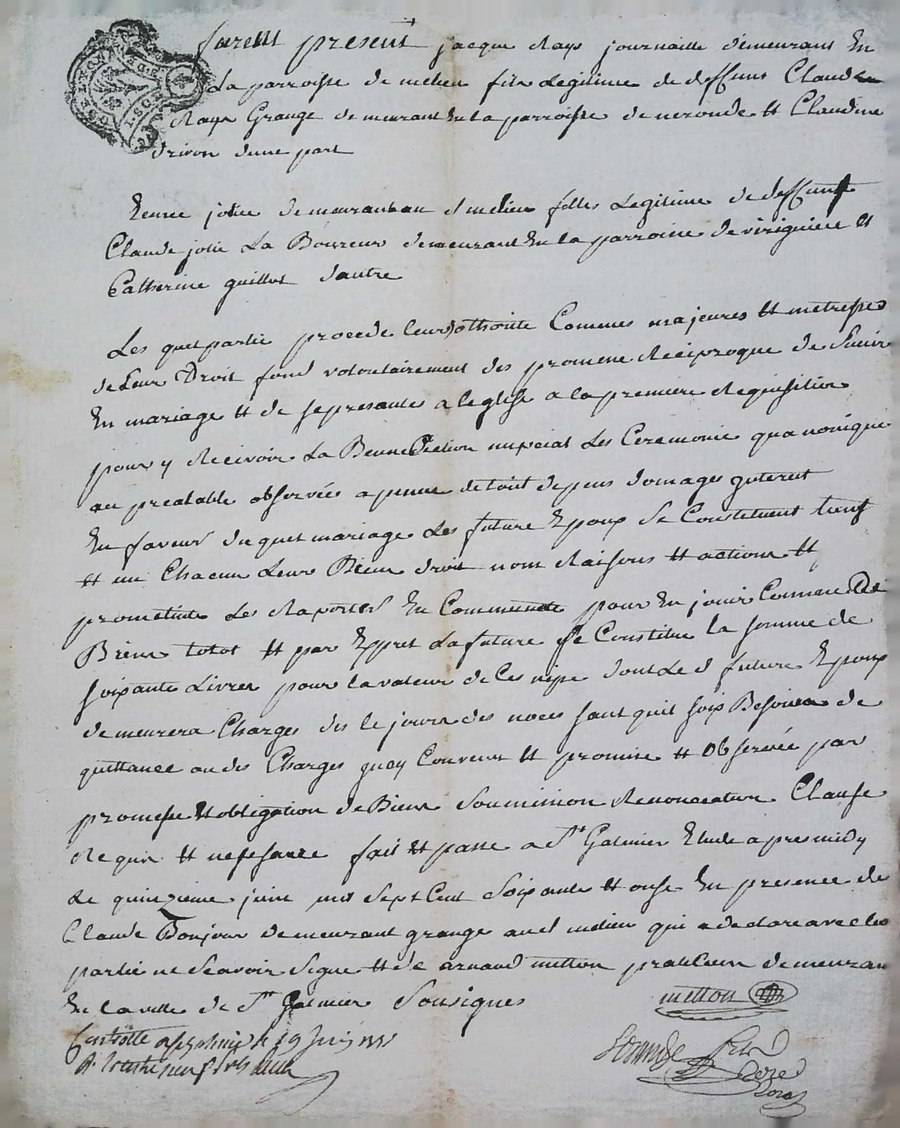 furent present jacque Raye journallie demeurant En
La parroisse de melieu fils Legitime de deffunt Claude
Raye Grange demeurant En la parroisse de neronde et Claudine
drivon dune part
jolie demeurant au d melieu filles Legitime de deffunt
Claude jolie La Boureur demeurant En la parroisse de virigniere et
Catherine guillot dautre
Les quel partie procede leurs othorite Comme majeures et metresse
de Leur Droit fond volontairement des promene Reciproque de Sunir
En mariage et de se presanter a leglise a la premiere Requisition
pour y Recivoir La Benediction nupcial Les Ceremonie quanonique
au prealable observées a penne de tout depens domages quterest
En faveur duquel mariage Les future Epoux Se Constituent
et un Chacun Leur Bien droit nom Raisons et actions et
promettent Les Raporter En Communete pour En jouir Comme
Biens totot et par Expret La future se Constitue la somme de
soixante Livres pour la valeur de Ces nipe dont Le d future Epoux
demeurera Charges des le jours des noces sant quil soix Besoin de
quittance ou des Charges quoy Convenu et promise et observée par
promesse et obligation de Bien Soumission Renonciation Clause
Requis et nessesaire fait et passe a St Galmier Etude apres midy
Le quinzieme juin mil Sept Cent Soixante et onse En presence de
Claude Bonjour demeurant grange au d melieu qui a declare avec les
partie ne Scavoir Signe et de arnaud mitton praticien demeurant
En la ville de St Galmier Sousignes
mitton
Controlle a St galmier le 29 juin 1771